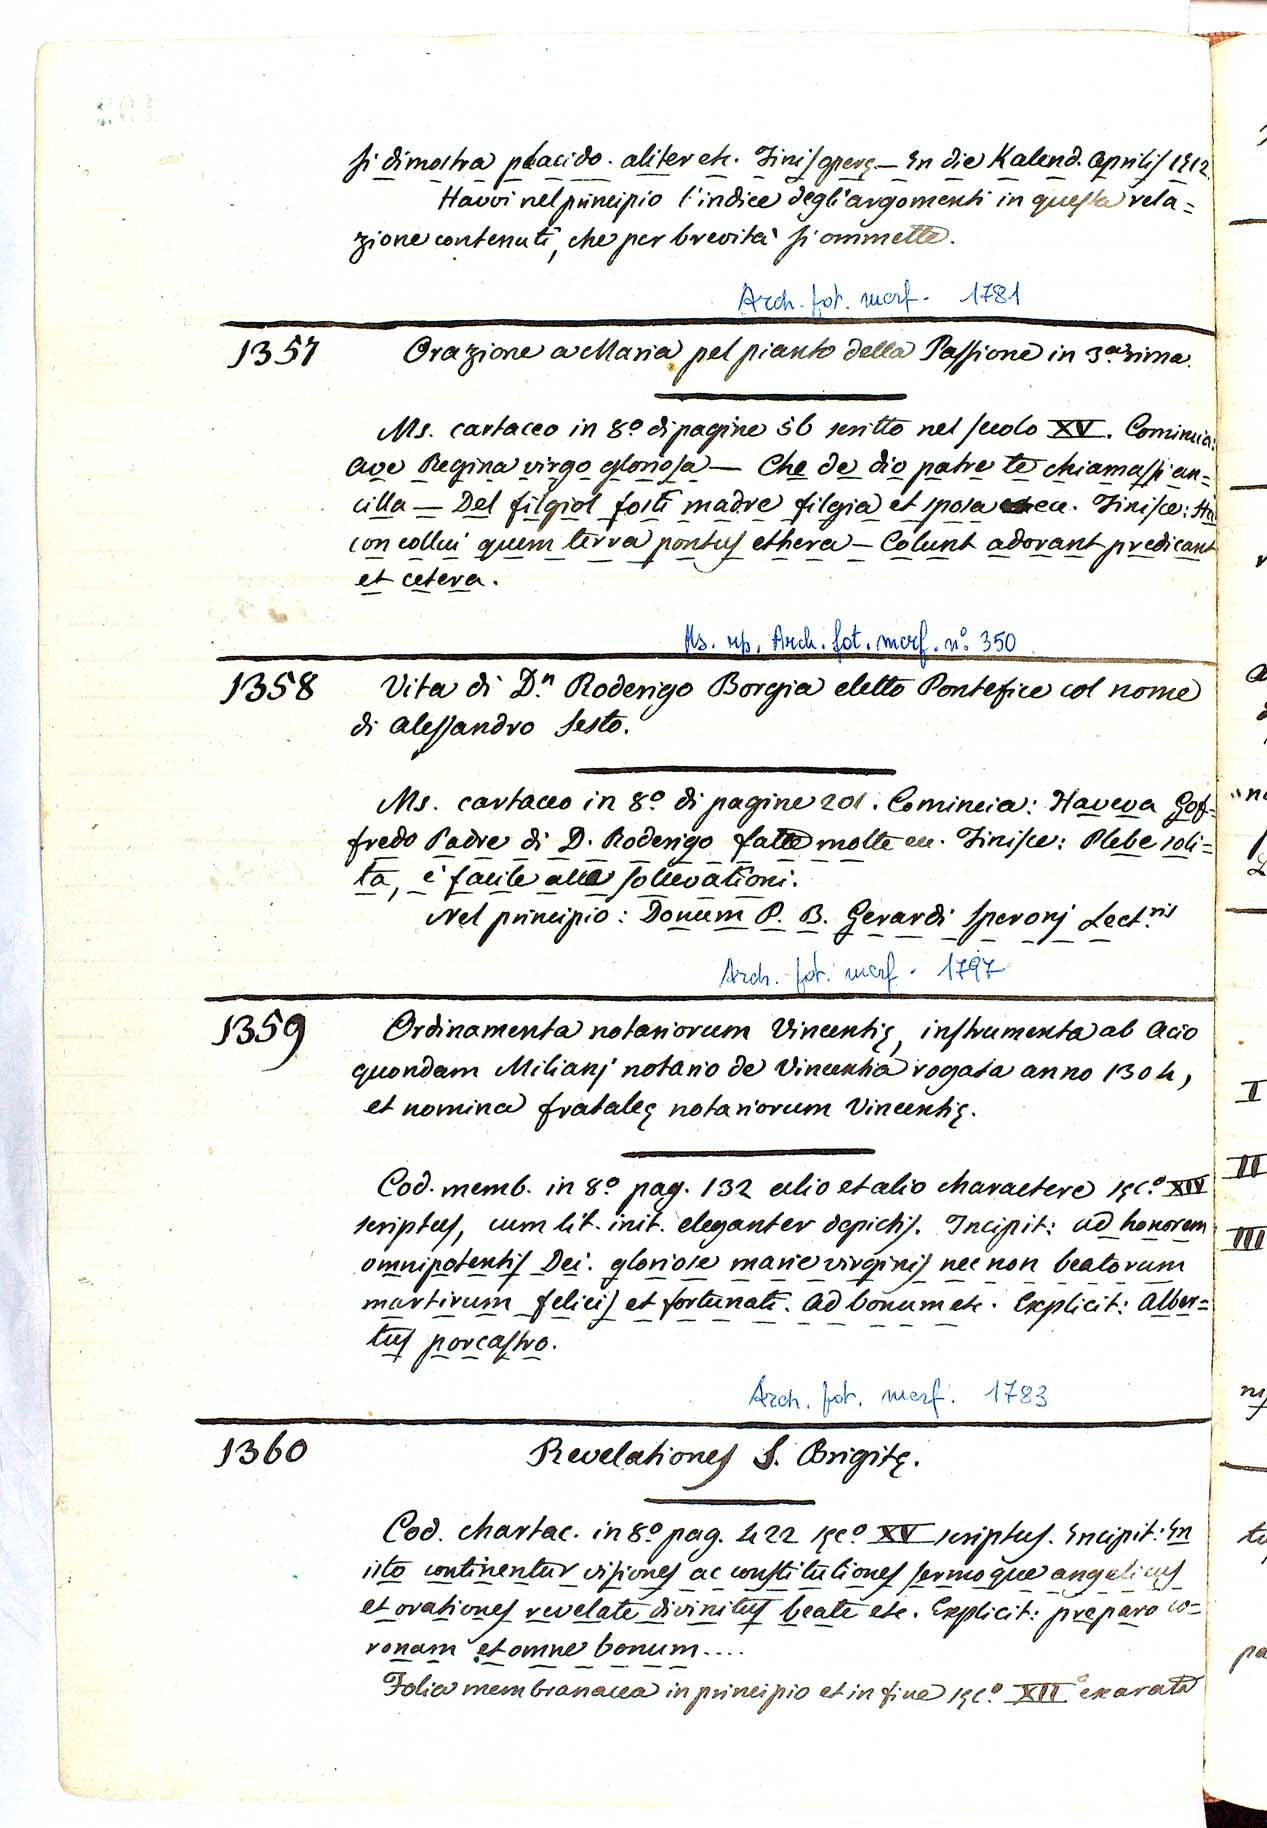 si dimostra placido. aliter etc. Finis operę — En die Kalend. Aprilis 1512
Havvi nel principio l'indice degli argomenti in questa rela=
zione contenuti, che per brevità si ommette.
Arch. fot. mcrf. 1781
1357 Orazione a Maria pel pianto della Passione in 3.ª rima.
Ms. cartaceo in 8.º di pagine 56 scritto nel secolo XV. Comincia:
Ave Regina virgo gloriosa — Che de dio patre te chiamassi an=
cilla — Del filgiol fosti madre filgia et sposa ecc. Finisce:
con collui quem terra pontus ethera — Colunt adorant predicant
et cetera.
Ms. rip. Arch. fot. mcrf. nº. 350
1358 Vita di D.n Roderigo Borgia eletto Pontefice col nome
di Alessandro Sesto.
Ms. cartaceo in 8.º di pagine 201. Comincia: Haveva Gof=
fredo Padre di D. Roderigo fatte molte ec. Finisce: Plebe soli=
ta, è facile alle sollevationi.
Nel principio: Donum P. B. Gerardi Speronj Lect.ris
Arch. fot. mcrf. 1797
1359 Ordinamenta notariorum Vincentię, instrumenta ab Acio
quondam Milianj notario de Vincentia rogata anno 1304,
et nomina frataleę notariorum Vincentię.
Cod. memb. in 8.º pag. 132 alio et alio charactere sęc.º XIV
scriptus, cum lit. init. eleganter depictis. Incipit: Ad honorem
omnipotentis Dei. gloriose marie virginis nec non beatorum
martirum felicis et fortunati. Ad bonum etc. Explicit: Alber=
tus porcastro.
Arch. fot. mcrf. 1783
1360 Revelationes S. Brigitę.
Cod. chartac. in 8.º pag. 422 sęc.º XV scriptus. Incipit: En
isto continentur visiones ac constitutiones sermoque angelicus
et orationes revelate divinitus beate etc. Explicit: preparo co=
ronam et omne bonum....
Folia membranacea in principio et in fine sęc.º XII.º exarata